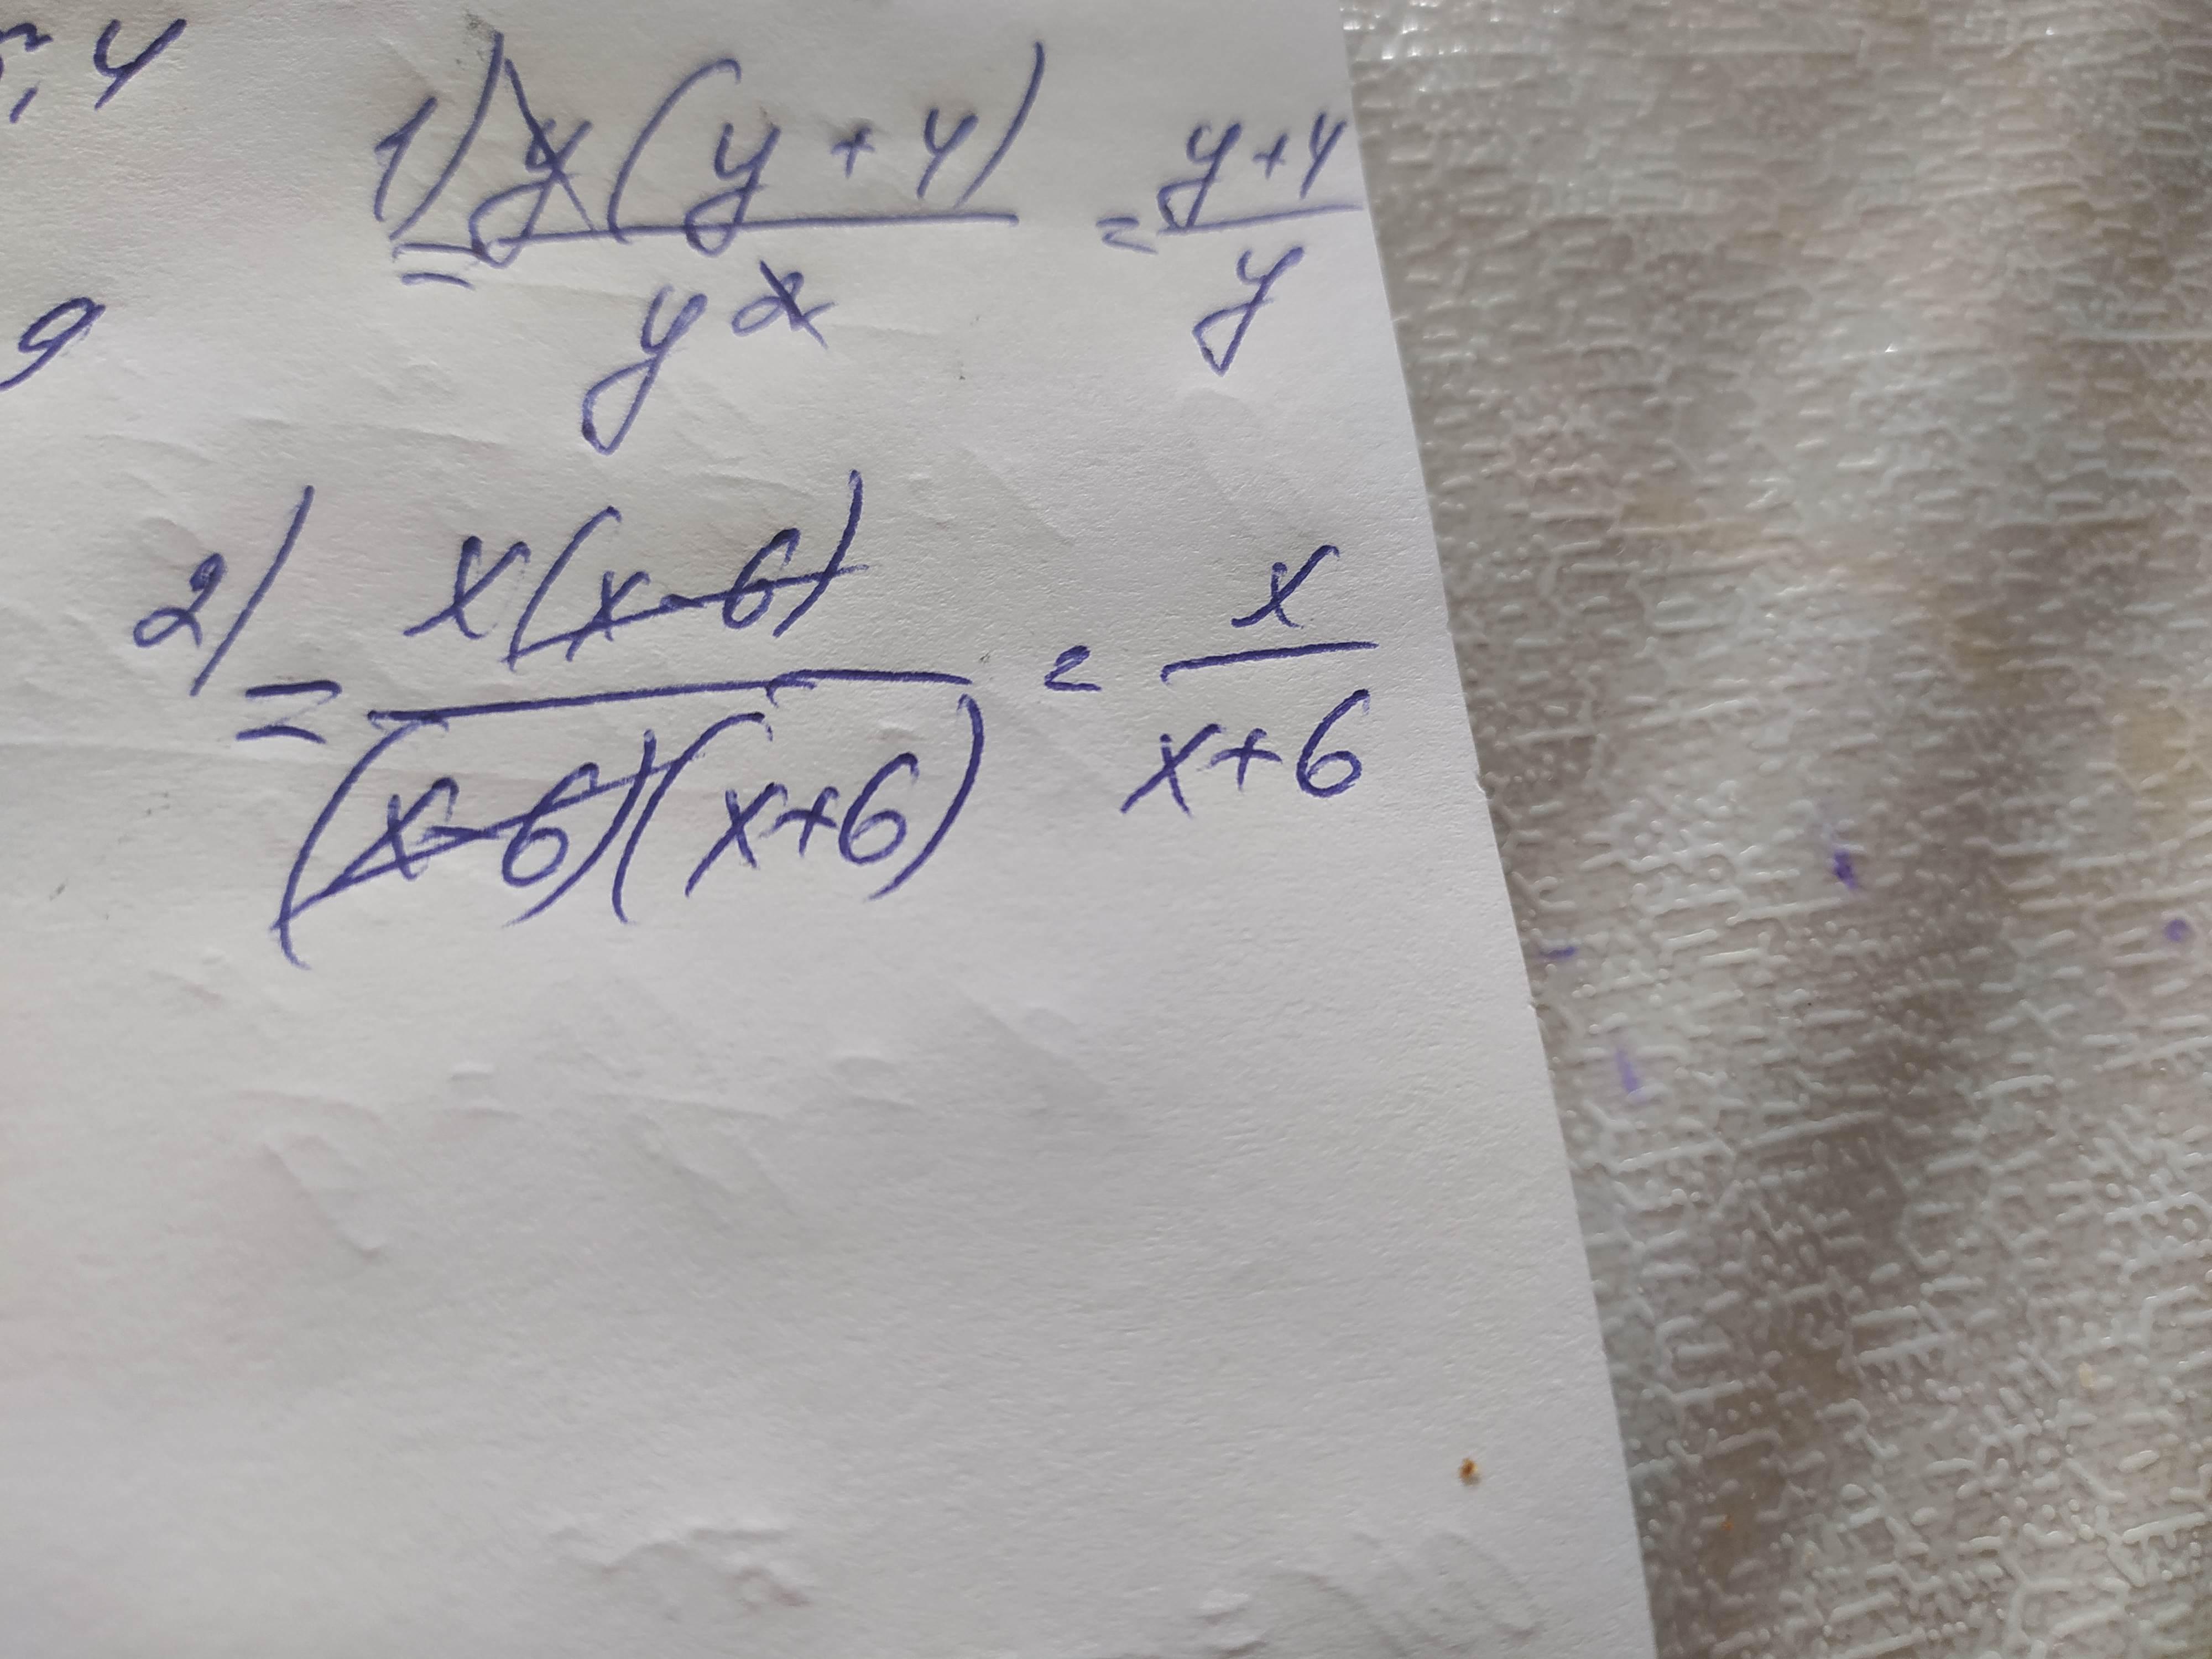 ; 4
1) = y(y+4)/y² = y+4/y
9
2) = x(x-6)/(x-6)(x+6) = x/x+6